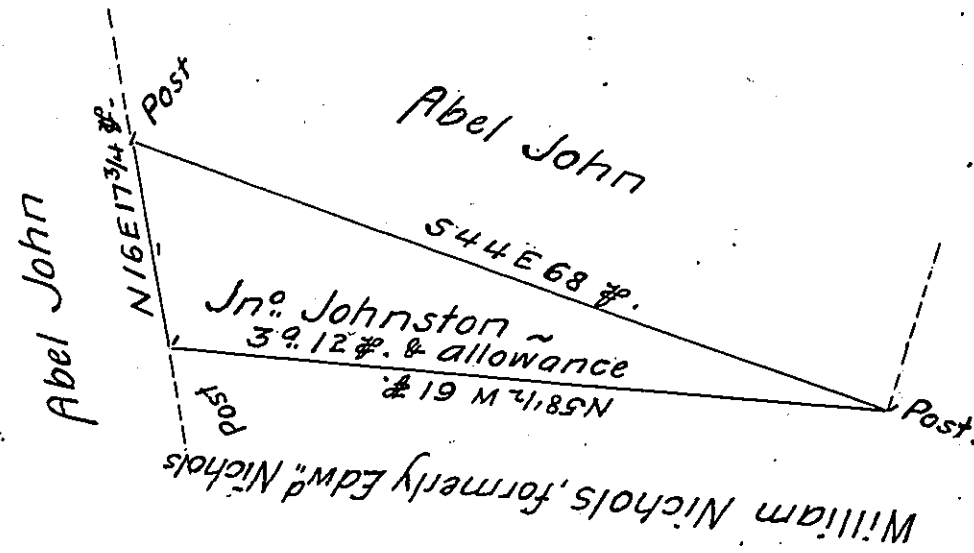 Post
Abel John
N16E17¾ p.
Abel John
S44E 68 p.
Jnº Johnston ~
3ª 12 p. & allowance
N58½ W 61 p.
Post
Post.
William Nichols, formerly Edwᵈ Nichols